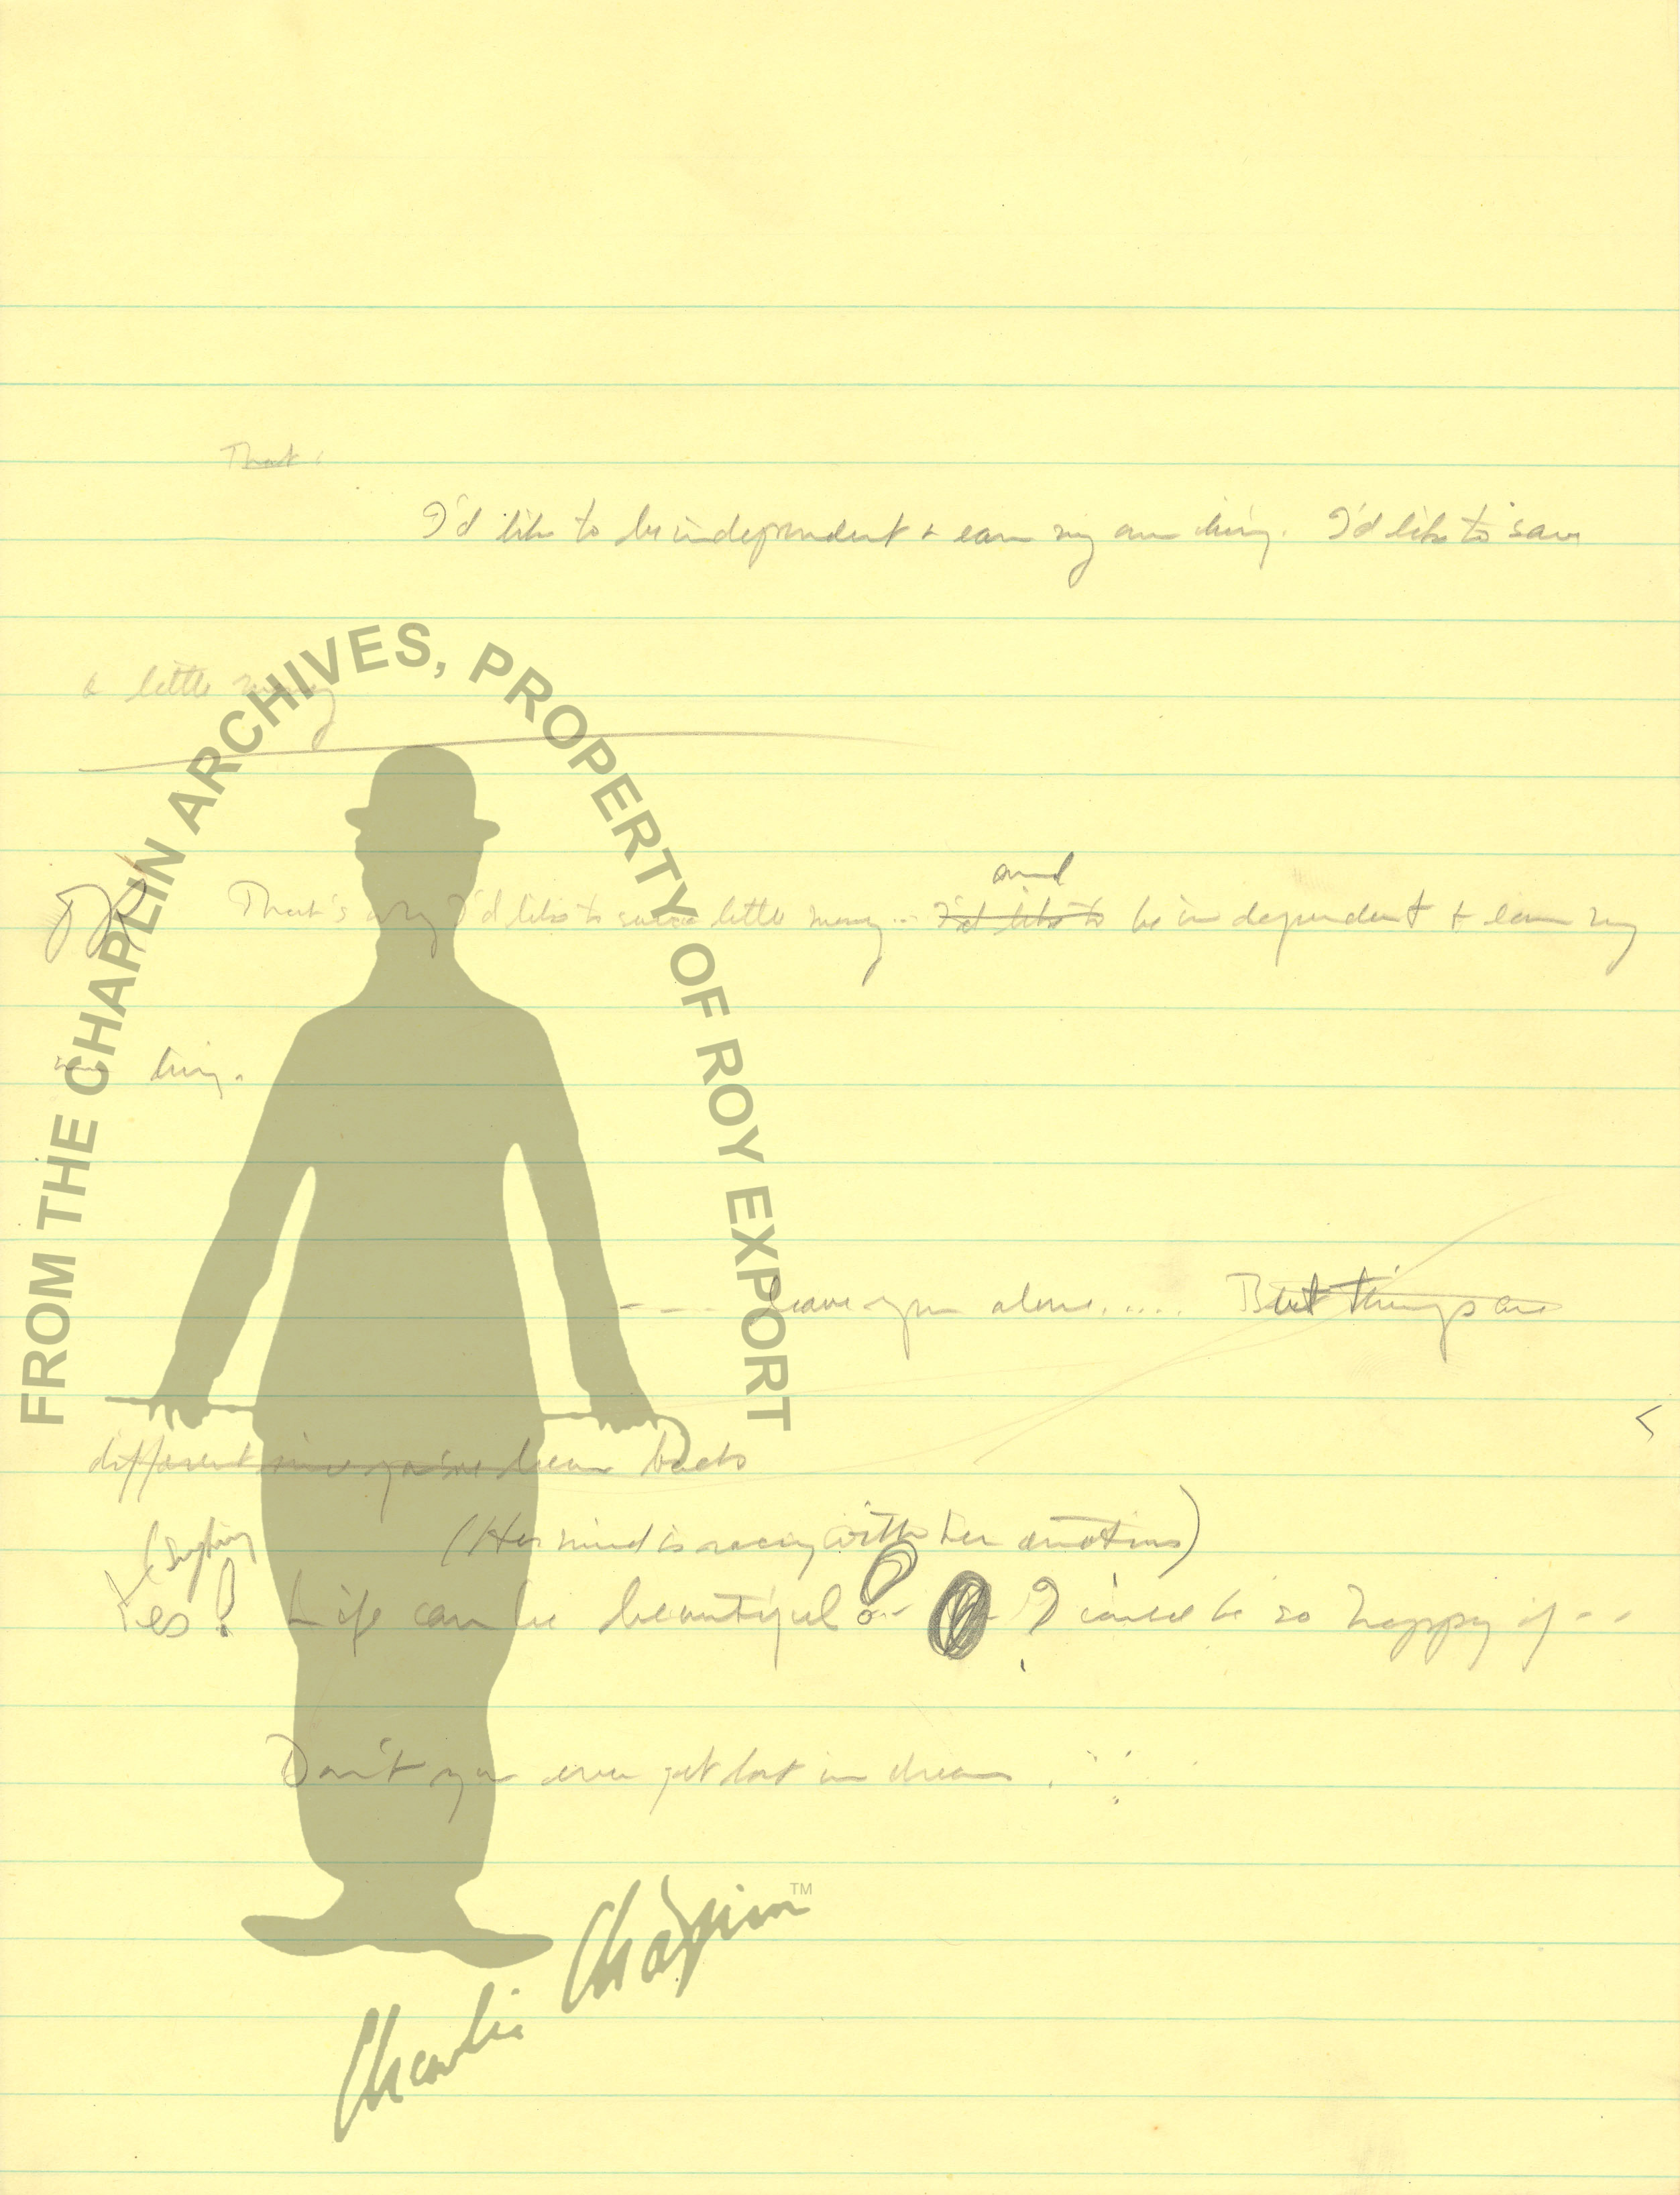 That
I'd like to be independent + earn my own living. I'd like to save
a little money
That's why I'd like to save a little money... I'd like to and be independent + earn my
own living.
---- leave you alone..... But things are
different since you've been back
(Her mind is racing with her emotions)
(sighing
Yes! Life can be beautiful I could be so happy if --
Don't you ever get lost in dreams
FROM THE CHAPLIN ARCHIVES, PROPERTY OF ROY EXPORT
Charlie Chaplin™